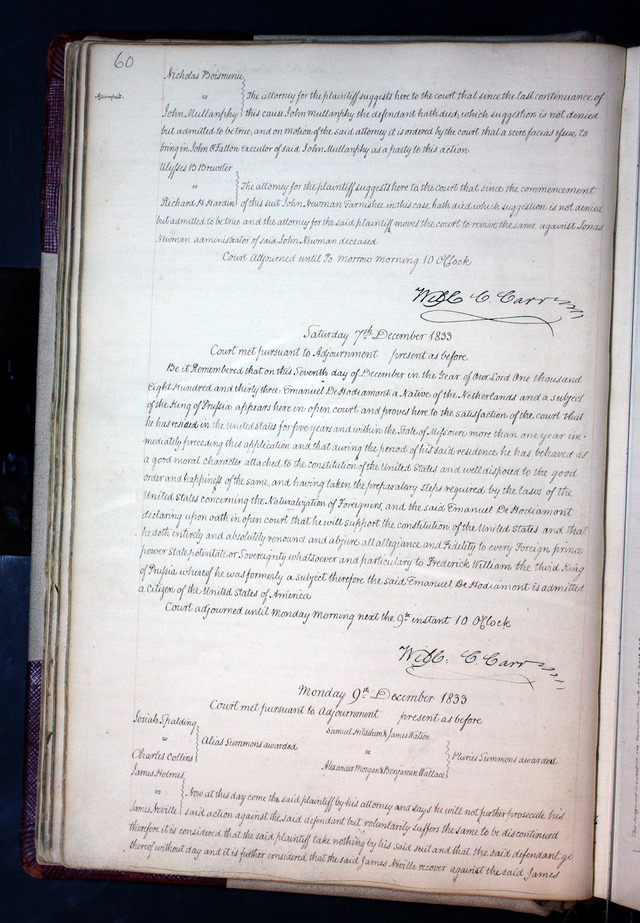 60
Nicholas Boismenu
vs
The attorney for the plaintiff suggests here to the court that since the last continuance of
Assumpsit.
John Mullanphy this cause John Mullanphy the defendant hath died, which suggestion is not denied
but admitted to be true, and on motion of the said attorney it is ordered by the court that a scire facias issue, to
bring in John O'Fallon executor of said John Mullanphy as a party to this action
Ulysses B Brewster
vs
The attorney for the plaintiff suggests here to the Court that since the commencement
Richard H Hardin of this suit John Newman Garnishee in this case hath died which suggestion is not denied
but admitted to be true and the attorney for the said plaintiff moves the court to revive the same against Jonas
Newman administrator of said John Newman deceased
Court Adjourned until To morrow morning 10 OClock
Will C Carr
Saturday 7th December 1833
Court met pursuant to Adjournment present as before
Be it Remembered that on this Seventh day of December in the Year of Our Lord One thousand
Eight Hundred and thirty three Emanuel De Hodiamont a Native of the Netherlands and a subject
of the King of Prussia appears here in open court and proves here to the satisfaction of the court that
he has resided in the United States for five years and within the State of Missouri more than one year im-
mediately preceeding this application and that during the period of his said residence he has behaved as
a good moral character attached to the constitution of the United States and well disposed to the good
order and happiness of the same, and having taken the preparatary steps required by the laws of the
United States concerning the Naturalization of Foreigners, and the said Emanuel De Hodiamont
declaring upon oath in open court that he will support the constitution of the United States and that
he doth entirely and absolutely renounce and abjure all allegiance and Fidelity to every Foreign prince
power state potentate or Sovereignty whatsoever and particulary to Frederick William the third King
of Prussia whereof he was formerly a subject therefore the said Emanuel De Hodiamont is admitted
a Citizen of the United States of America
Court adjourned until Monday Morning next the 9th instant 10 OClock
Will. C. Carr
Monday 9th December 1833
Court met pursuant to Adjournment present as before
Josiah Spalding
vs
Alias Summons awarded
Charles Collins
Samuel Hildeburn & James Watson
vs
Pluries Summons awarded
Alexander Morgan & Benjamin Wallace
James Holmes
vs
Now at this day come the said plaintiff by his attorney and says he will not further prosecute his
James Neville said action against the said defendant but voluntarily suffers the same to be discontinued
therefore it is considered that the said plaintiff take nothing by his said suit and that the said defendant go
thereof without day and it is further considered that the said James Neville recover against the said James